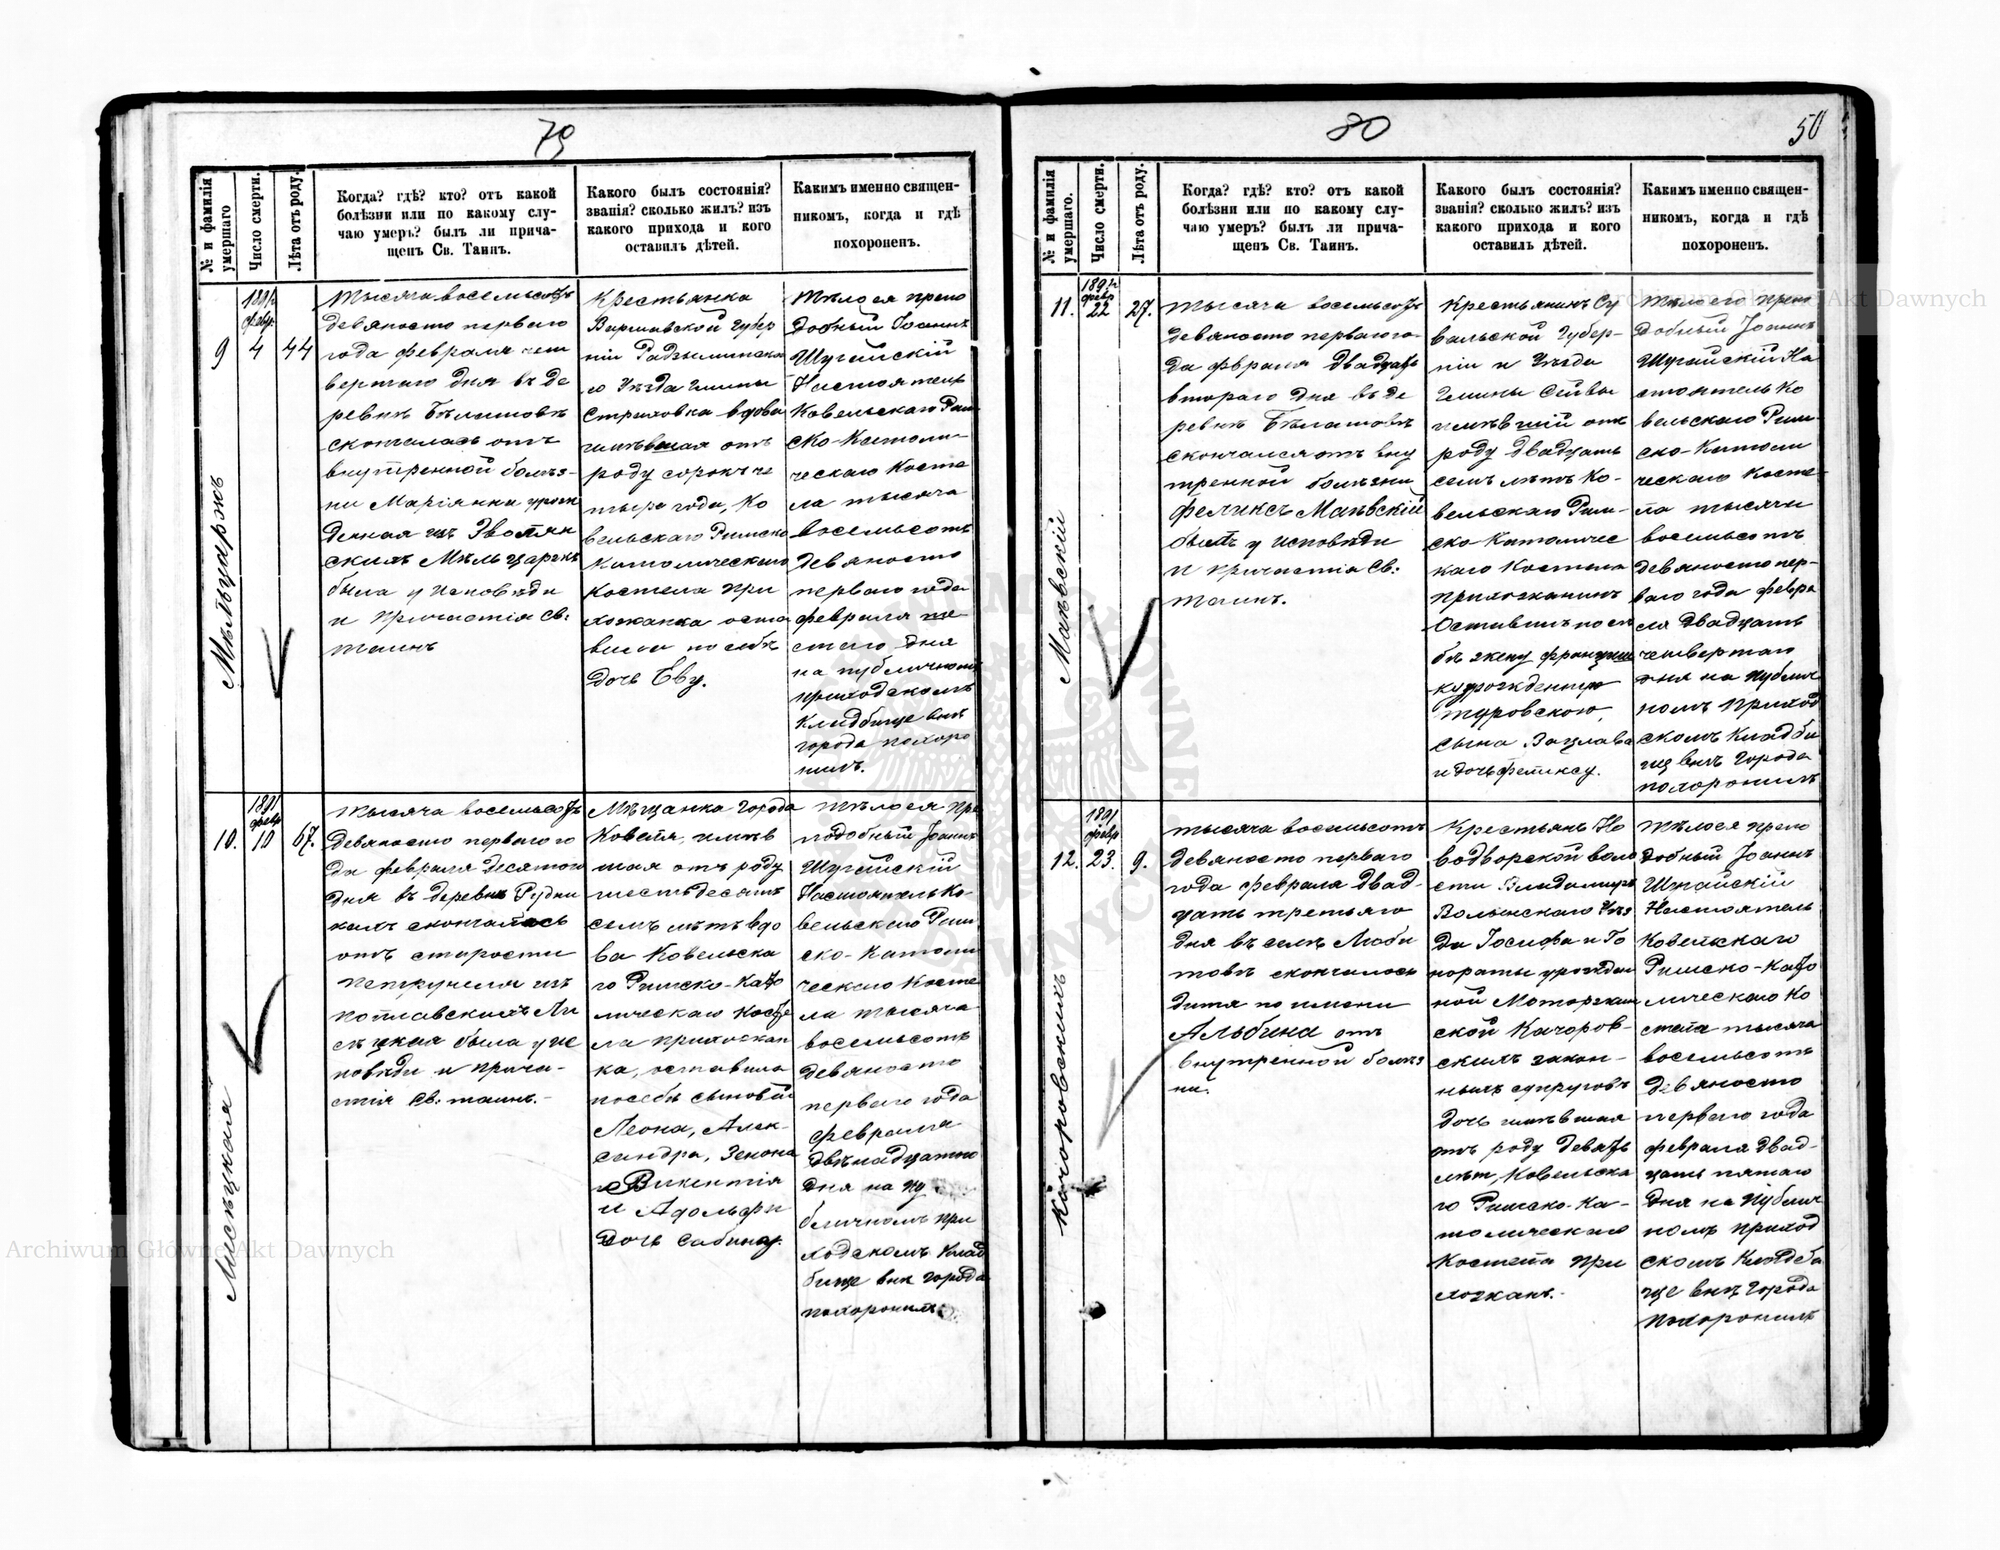 79
№ и фамилія умершаго
Число смерти.
Лѣта отъ роду.
Когда? гдѣ? кто? отъ какой
болѣзни или по какому слу-
чаю умеръ? былъ ли прича-
щенъ Св. Таинъ.
Какого былъ состоянія?
званія? сколько жилъ? изъ
какого прихода и кого
оставилъ дѣтей.
Какимъ именно священ-
никомъ, когда и гдѣ
похороненъ.
9
Мѣльцаржъ
1891
февр.
4
44
Тысяча восемьсотъ
девяносто перваго
года февраля чет
вертаго дня въ де
ревнѣ Бѣлашовѣ
скончалась отъ
внутренной болѣз-
ни Маріянна урож
денная изъ
скихъ Мѣльцаржъ
была у исповѣди
и причастія Св:
таинъ
Крестьянка
Варшавской Губер
ніи Радзыминска
го Уѣзда Гмины
Страховка вдова
имѣвшая отъ
роду сорокъ че
тыре года, Ко
вельскаго Римско
Католическаго
костела при
хожанка оста
вила по себѣ
дочь Еву.
Тѣло ея препо
добный Іоаннъ
Шугайскій
Настоятель
Ковельскаго Рим
ско-Католи-
ческаго Косте
ла тысяча
восемьсотъ
девяносто
перваго года
февраля ше
стаго дня
на публичномъ
приходскомъ
кладбище внѣ
города похоро
нилъ.
10.
Лисѣцкая
1891
февр
10
67.
Тысяча восемьсотъ
девяносто перваго го
да февраля десятого
дня въ деревнѣ Рудни
кахъ скончалась
отъ старости
Петрунеля изъ
Поплавскихъ Ли
сѣцкая была у ис
повѣди и прича-
стія Св: таинъ.-
Мѣщанка города
Ковеля, имѣв
шая отъ роду
шестьдесятъ
семь лѣтъ вдо
ва Ковельска
го Римско-Като
лическаго Косте
ла прихожан
ка, оставила
по себѣ сыновей
Леона, Алек-
сандра, Зенона
и Викентія
и Адольфа
дочь Сабину.
Тѣло ея пре
подобный Іоаннъ
Шугайскій
Настоятель Ко-
вельскаго Рим
ско-Католи
ческаго Косте
ла тысяча
восемьсотъ
девяносто
перваго года
февраля
двѣнадцатаго
дня на пу
бличномъ при
ходскомъ клад
бище внѣ города
похоронилъ
80
50
№ и фамилія умершаго.
Число смерти.
Лѣта отъ роду.
Когда? гдѣ? кто? отъ какой
болѣзни или по какому слу-
чаю умеръ? былъ ли прича-
щенъ Св. Таинъ.
Какого былъ состоянія?
званія? сколько жилъ? изъ
какого прихода и кого
оставилъ дѣтей.
Какимъ именно священ-
никомъ, когда и гдѣ
похороненъ.
11.
Маѣвскій
1891
февр
22
27.
Тысяча восемьсотъ
девяносто перваго го-
да февраля двадцать
втораго дня въ де
ревнѣ Бѣлашовѣ
скончался отъ вну
тренной болѣзни
Феликсъ Маѣвскій
былъ у исповѣди
и причастія Св:
таинъ.
Крестьянинъ Су
вальской Губер-
ніи и Уѣзда
Гмины Сейвы
имѣвшій отъ
роду двадцать
семь лѣтъ Ко-
вельскаго Рим-
ско-Католичес
каго Костела
прихожанинъ
Оставилъ по се
бѣ жену Францишку
урожденную
Туровскою,
сына Вацлава
и дочь Феликсу.
Тѣло его преп
одобный Іоаннъ
Шугайскій На
стоятель Ко
вельскаго Рим-
ско-Католи
ческаго Косте-
ла тысяча
восемьсотъ
девяносто пер-
ваго года февра
ля двадцать
четвертаго
дня на публич
номъ приход
скомъ кладби
щѣ внѣ города
похоронилъ
12.
Качоровскихъ
1891
февр
23.
9.
Тысяча восемьсотъ
девяносто перваго
года февраля двад-
цать третьяго
дня въ селѣ Люби
товѣ скончалось
дитя по имени
Альбина отъ
внутренной болѣз
ни.
Крестьянъ Но
водворской воло
сти Владимиръ
Волынскаго Уѣз
да Іосифа и Го
нораты урожден
ной
ской Качоров-
скихъ закон-
ныхъ супруговъ
дочь имѣвшая
отъ роду девять
лѣтъ, Ковельска
го Римско-Ка-
толическаго
Костела при
хожанъ.-
Тѣло ея препо
добный Іоаннъ
Шугайскій
Настоятель
Ковельскаго
Римско-Като
лическаго Ко
стела тысяча
восемьсотъ
девяносто
перваго года
февраля двад-
цать пятаго
дня на публич
номъ приход
скомъ кладби
ще внѣ города
похоронилъ
Archiwum Główne Akt Dawnych
Archiwum Główne Akt Dawnych